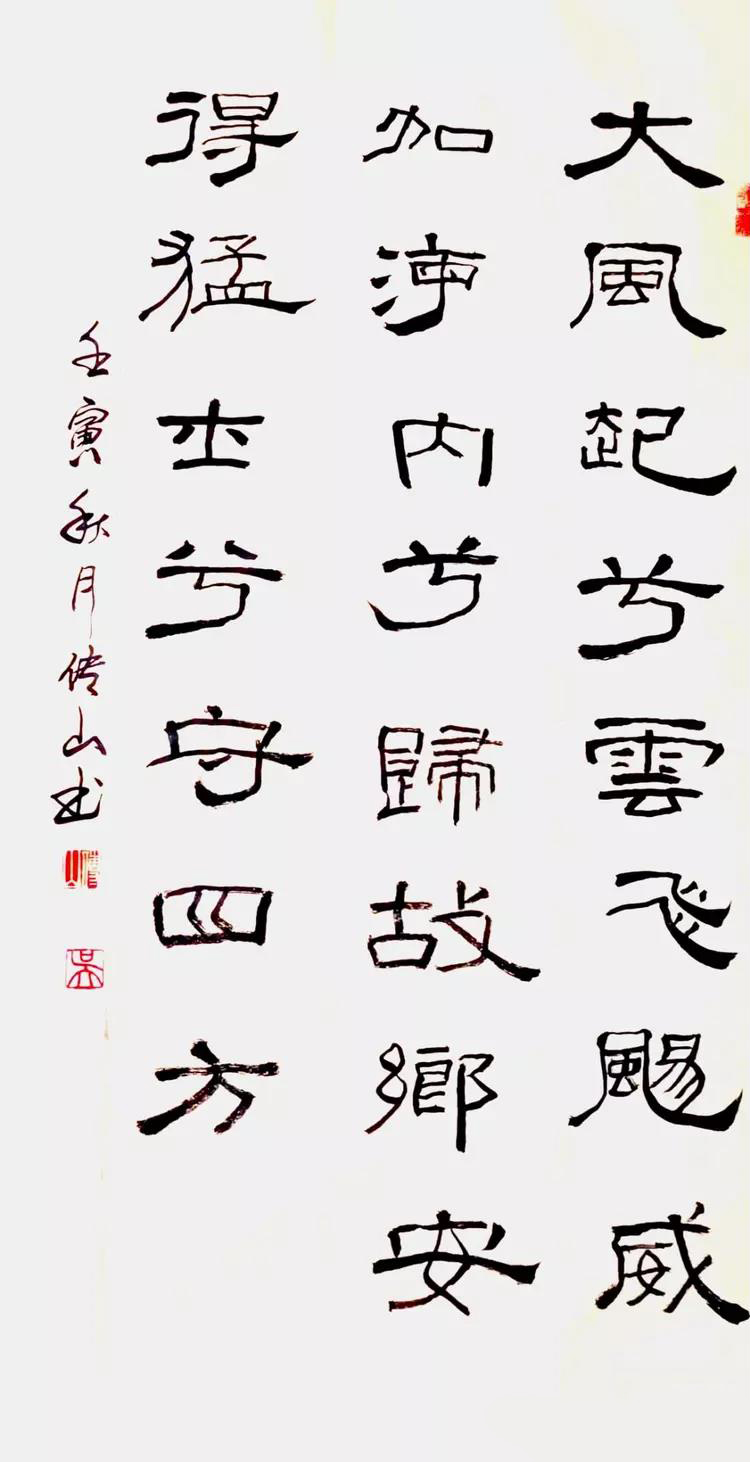 大風起兮雲飛颺威
加海内兮歸故鄉安
得猛士兮守四方
壬寅秋月传山书